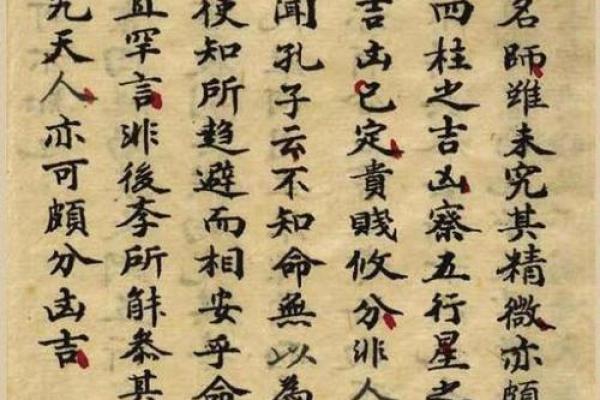 名師雖未究其精微亦頗
四柱之吉凶察五行星之
吉凶已定貴賤攸分非人
聞孔子云不知命無以為
使知所趋避而相安乎命
且罕言非後李所能叅其
究天人亦可頗分凶吉